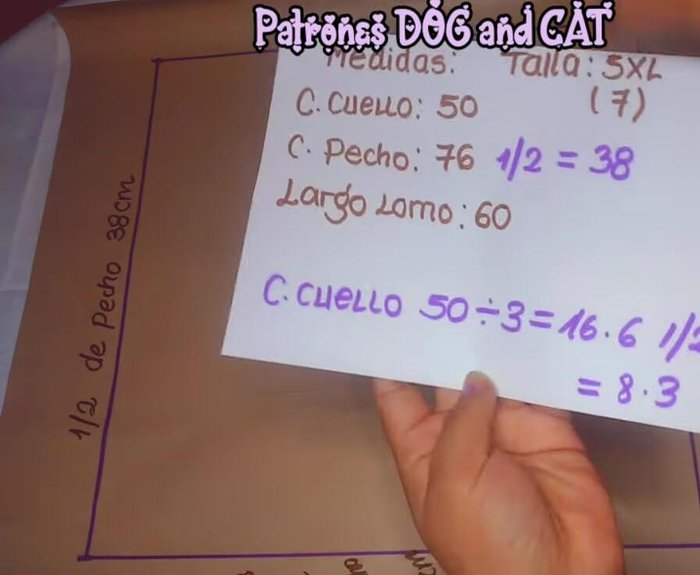 Patrones DOG and CAT
Medidas: Talla: 5XL
(7)
C. Cuello: 50
C. Pecho: 76 1/2 = 38
Largo Lomo: 60
C. Cuello 50÷3=16.6 1/2
= 8.3
1/2 de Pecho 38cm